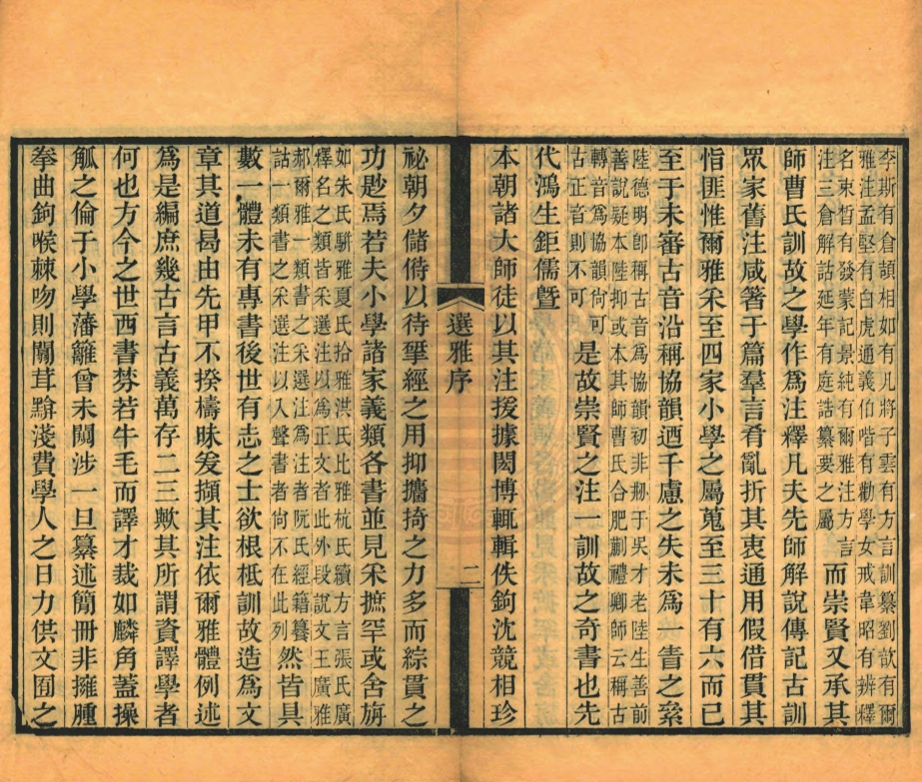 李斯有倉頡相如有凡將子雲有方言訓纂劉歆有爾
雅注孟堅有白虎通義伯喈有勸學女戒韋昭有辨釋
名束晳有發蒙記景純有爾雅注方言
注三倉解詁延年有庭誥纂要之屬而崇賢又承其
師曹氏訓故之學作爲注釋凡夫先師解說傳記古訓
眾家舊注咸箸于篇羣言肴亂折其衷通用假借貫其
恉匪惟爾雅采至四家小學之屬蒐至三十有六而已
至于未審古音沿稱協韻迺千慮之失未爲一眚之絫
陸德明卽稱古音爲協韻初非剏于吳才老陸生善前
善說疑本陸抑或本其師曹氏合肥蒯禮卿師云稱古
轉音爲協韻尙可
古正音則不可是故崇賢之注一訓故之奇書也先
代鴻生鉅儒曁
本朝諸大師徒以其注援據閎博輒輯佚鉤沈競相珍
選雅序
二
祕朝夕儲偫以待揅經之用抑攟掎之力多而綜貫之
功尟焉若夫小學諸家義類各書並見采摭罕或舍旃
如朱氏駢雅夏氏拾雅洪氏比雅杭氏續方言張氏廣
釋名之類皆采選注以爲正文者此外段說文王廣雅
郝爾雅一類書之采選注爲注者阮氏經籍籑
詁一類書之采選注以入聲書者尙不在此列然皆具
數一體未有專書後世有志之士欲根柢訓故造爲文
章其道曷由先甲不揆檮昧爰擷其注依爾雅體例述
爲是編庶幾古言古義萬存二三歟其所謂資譯學者
何也方今之世西書棼若牛毛而譯才裁如麟角蓋操
觚之倫于小學藩籬曾未闚涉一旦纂述簡冊非擁腫
拳曲鉤喉棘吻則闒茸黭淺費學人之日力供文囿之